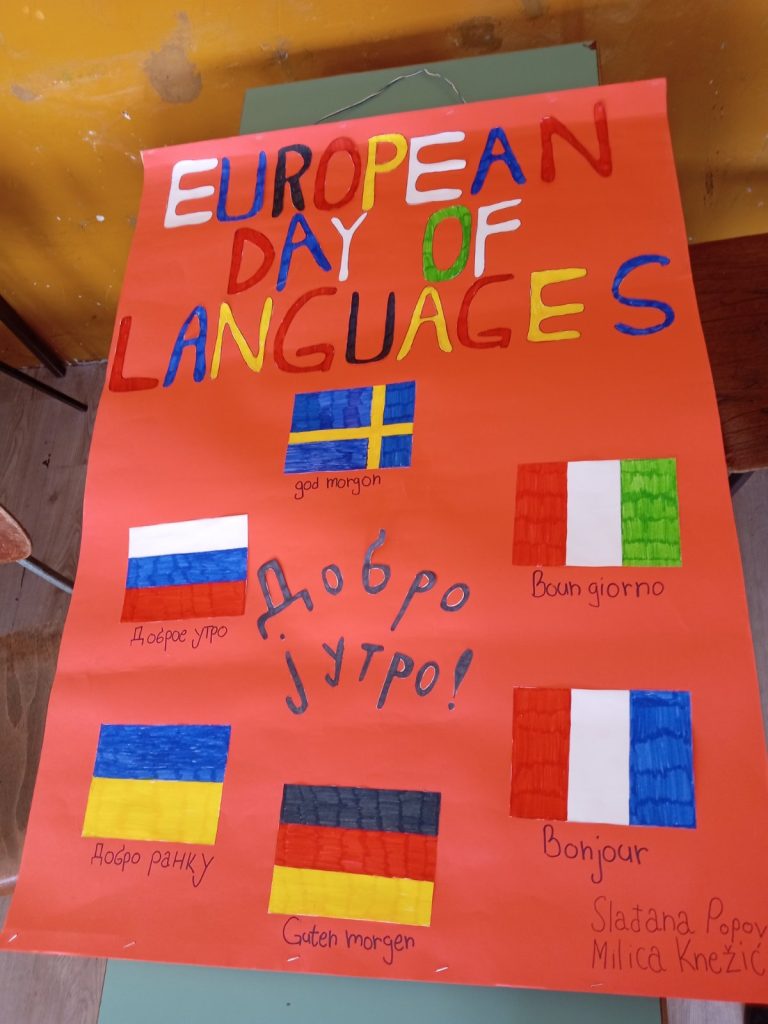 EUROPEAN
DAY OF
LANGUAGES
god morgon
Boun giorno
Доброе утро
Добро
јутро!
Добро ранку
Guten morgen
Bonjour
Slađana Popov
Milica Knežić